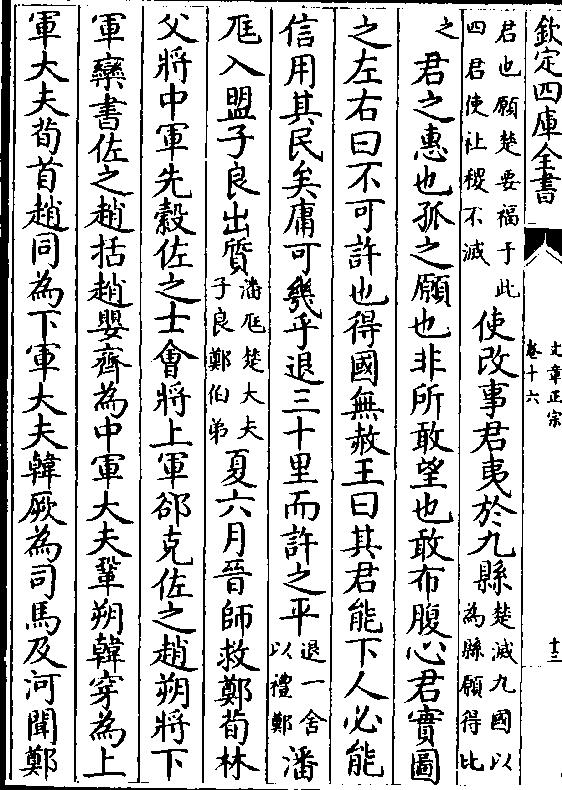 欽定四庫全書
文章正宗
卷十六
十三
君也願楚要福于此
四君使社稷不滅
使改事君夷於九縣
楚滅九國以
為縣願得比
之
君之惠也孤之願也非所敢望也敢布腹心君實圖
之左右曰不可許也得國無赦王曰其君能下人必能
信用其民矣庸可幾乎退三十里而許之平
退一舍
以禮鄭
潘
尫入盟子良出質
潘尫楚大夫
子良鄭伯弟
夏六月晉師救鄭荀林
父將中軍先縠佐之士會將上軍郤克佐之趙朔將下
軍欒書佐之趙括趙嬰齊為中軍大夫鞏朔韓穿為上
軍大夫荀首趙同為下軍大夫韓厥為司馬及河聞鄭